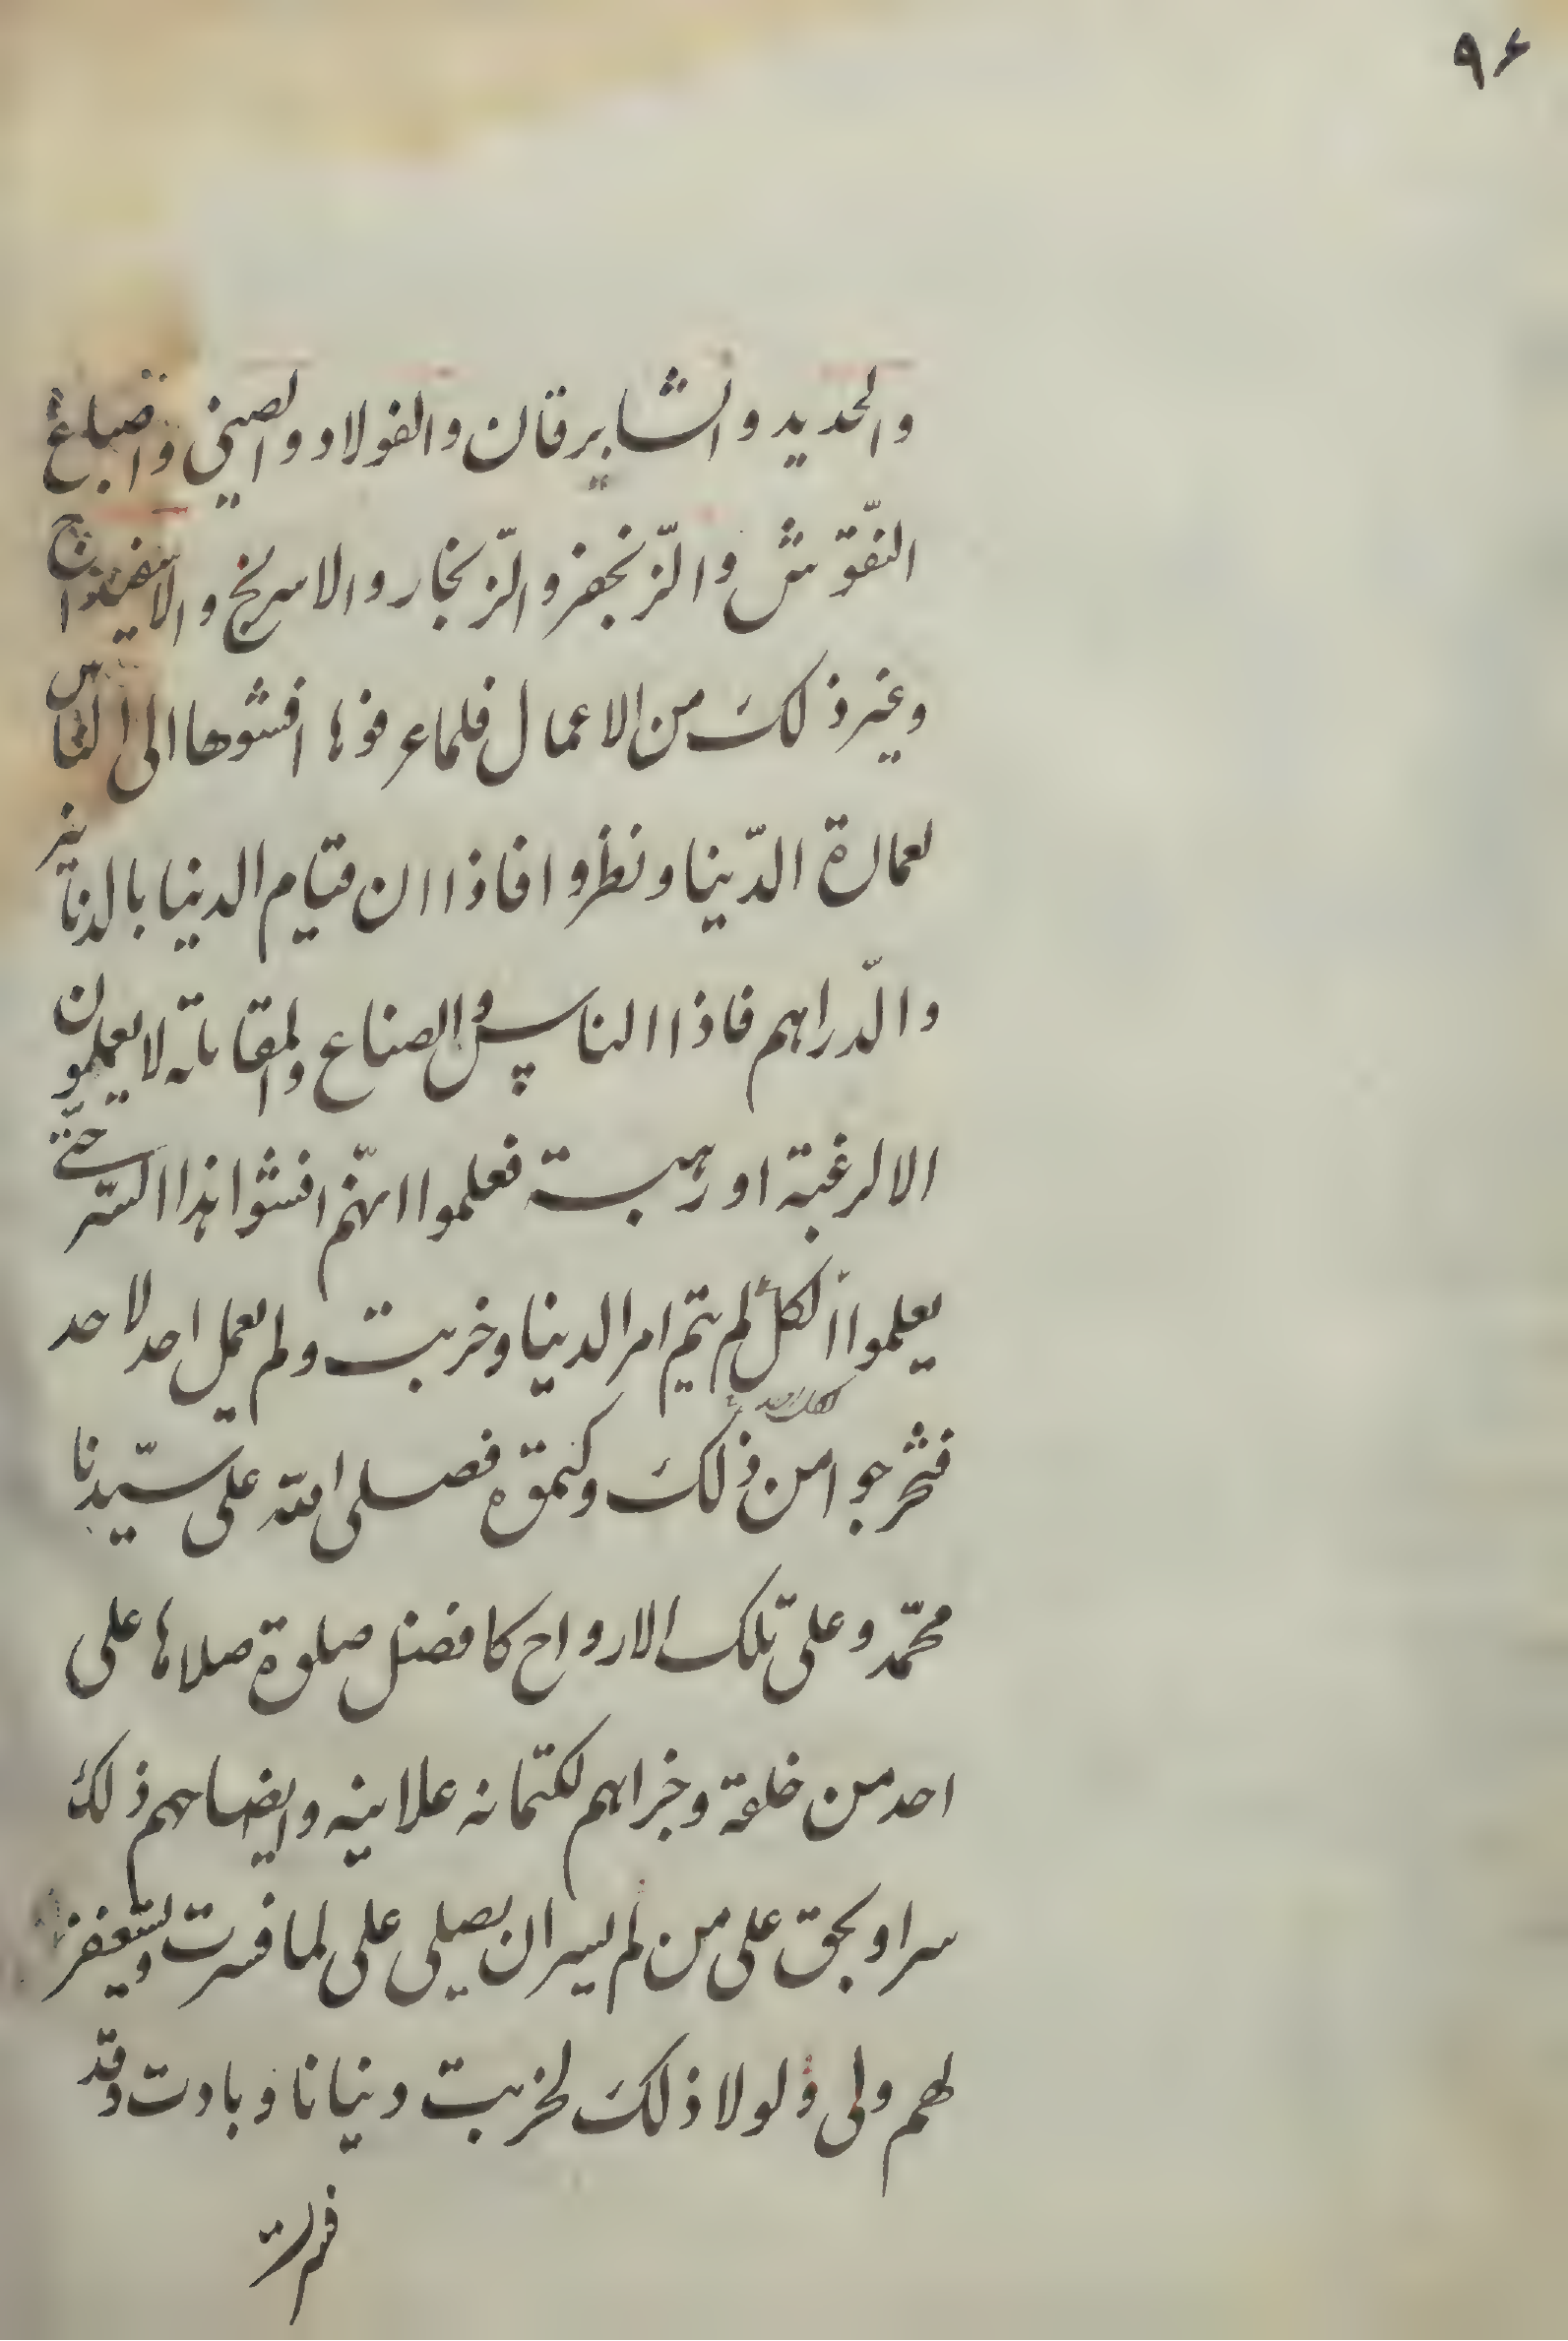 ۹۶
والحدید والشابرقان والفولاد والصینی واصباغ
النقوش والزّنجفر والزّنجار والاسرنج والاسفیداج
وغیر ذلک من الاعمال فلما عرفوها افشوها الی الناس
لعمارة الدّنیا ونظروا فاذا ان قیام الدنیا بالدنانیر
والدّراهم فاذا الناس والصناع والمقاتله لا یعملون
الا لرغبة او رهبة فعلموا انهّم افشوا هذا السّر حتّی
یعلموا الکل لم یتم امر الدنیا وخربت ولم یعمل احد لاحد
فتحرجوا من ذلک وکتموه فصلی الله علی سیّدنا
محمّد وعلی تلک الارواح کافضل صلوة صلاها علی
احد من خلقه وجزاهم لکتمانه علانیه وایضاحهم ذلک
سرا ویحق علی من لم یسر ان یصلی علی لما فسرت ویستغفر
لهم ولی ولولا ذلک لخربت دنیانا وبادت وقد
فسرت